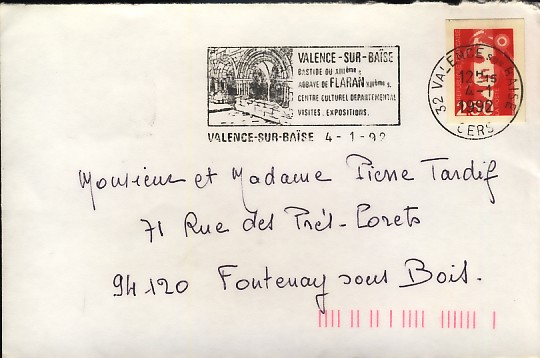 VALENCE-SUR-BAÏSE
BASTIDE DU XIIIème S
ABBAYE DE FLARAN XIIème S.
CENTRE CULTUREL DEPARTEMENTAL
VISITES. EXPOSITIONS.
VALENCE-SUR-BAÏSE 4-1-92
32 VALENCE SUR BAISE
4-1
1992
GERS
Monsieur et Madame Pierre Tardif
71 Rue des Prés-Lorets
94120 Fontenay sous Bois.